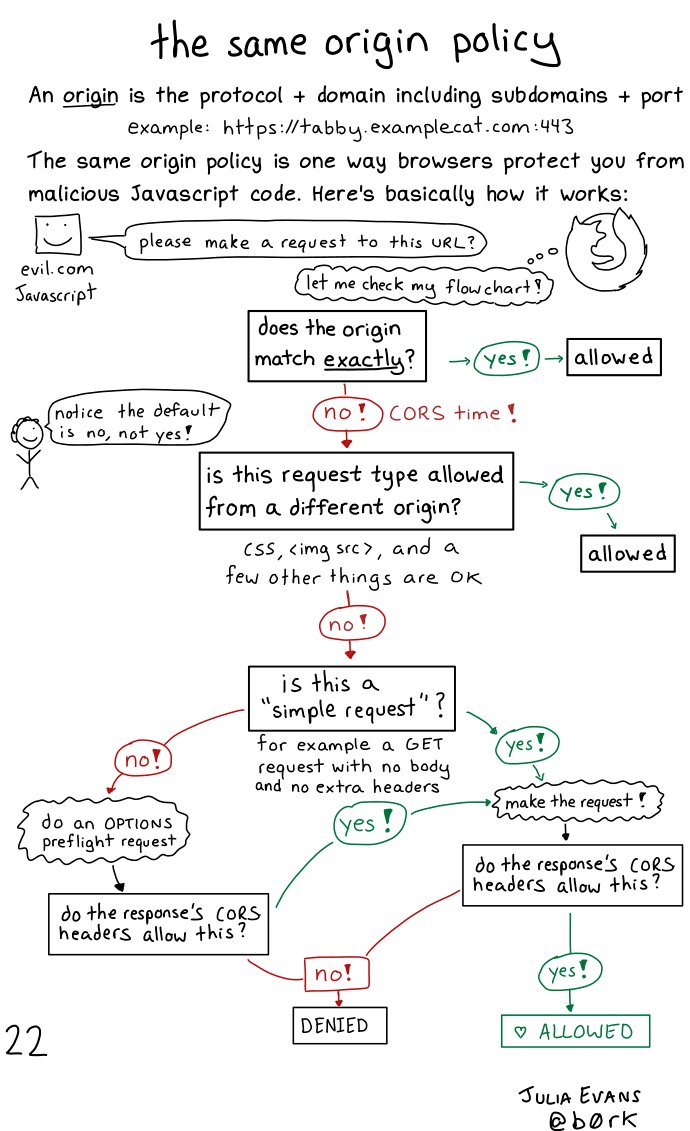 the same origin policy
An origin is the protocol + domain including subdomains + port
example: https://tabby.examplecat.com:443
The same origin policy is one way browsers protect you from
malicious Javascript code. Here's basically how it works:
please make a request to this URL?
evil.com
Javascript
let me check my flowchart!
does the origin
match exactly?
yes!
allowed
no! CORS time!
notice the default
is no, not yes!
is this request type allowed
from a different origin?
yes!
allowed
CSS, <img src>, and a
few other things are OK
no!
is this a
"simple request"?
for example a GET
request with no body
and no extra headers
yes!
no!
make the request!
do an OPTIONS
preflight request
yes!
do the response's CORS
headers allow this?
do the response's CORS
headers allow this?
no!
yes!
DENIED
♡ ALLOWED
22
JULIA EVANS
@b0rk